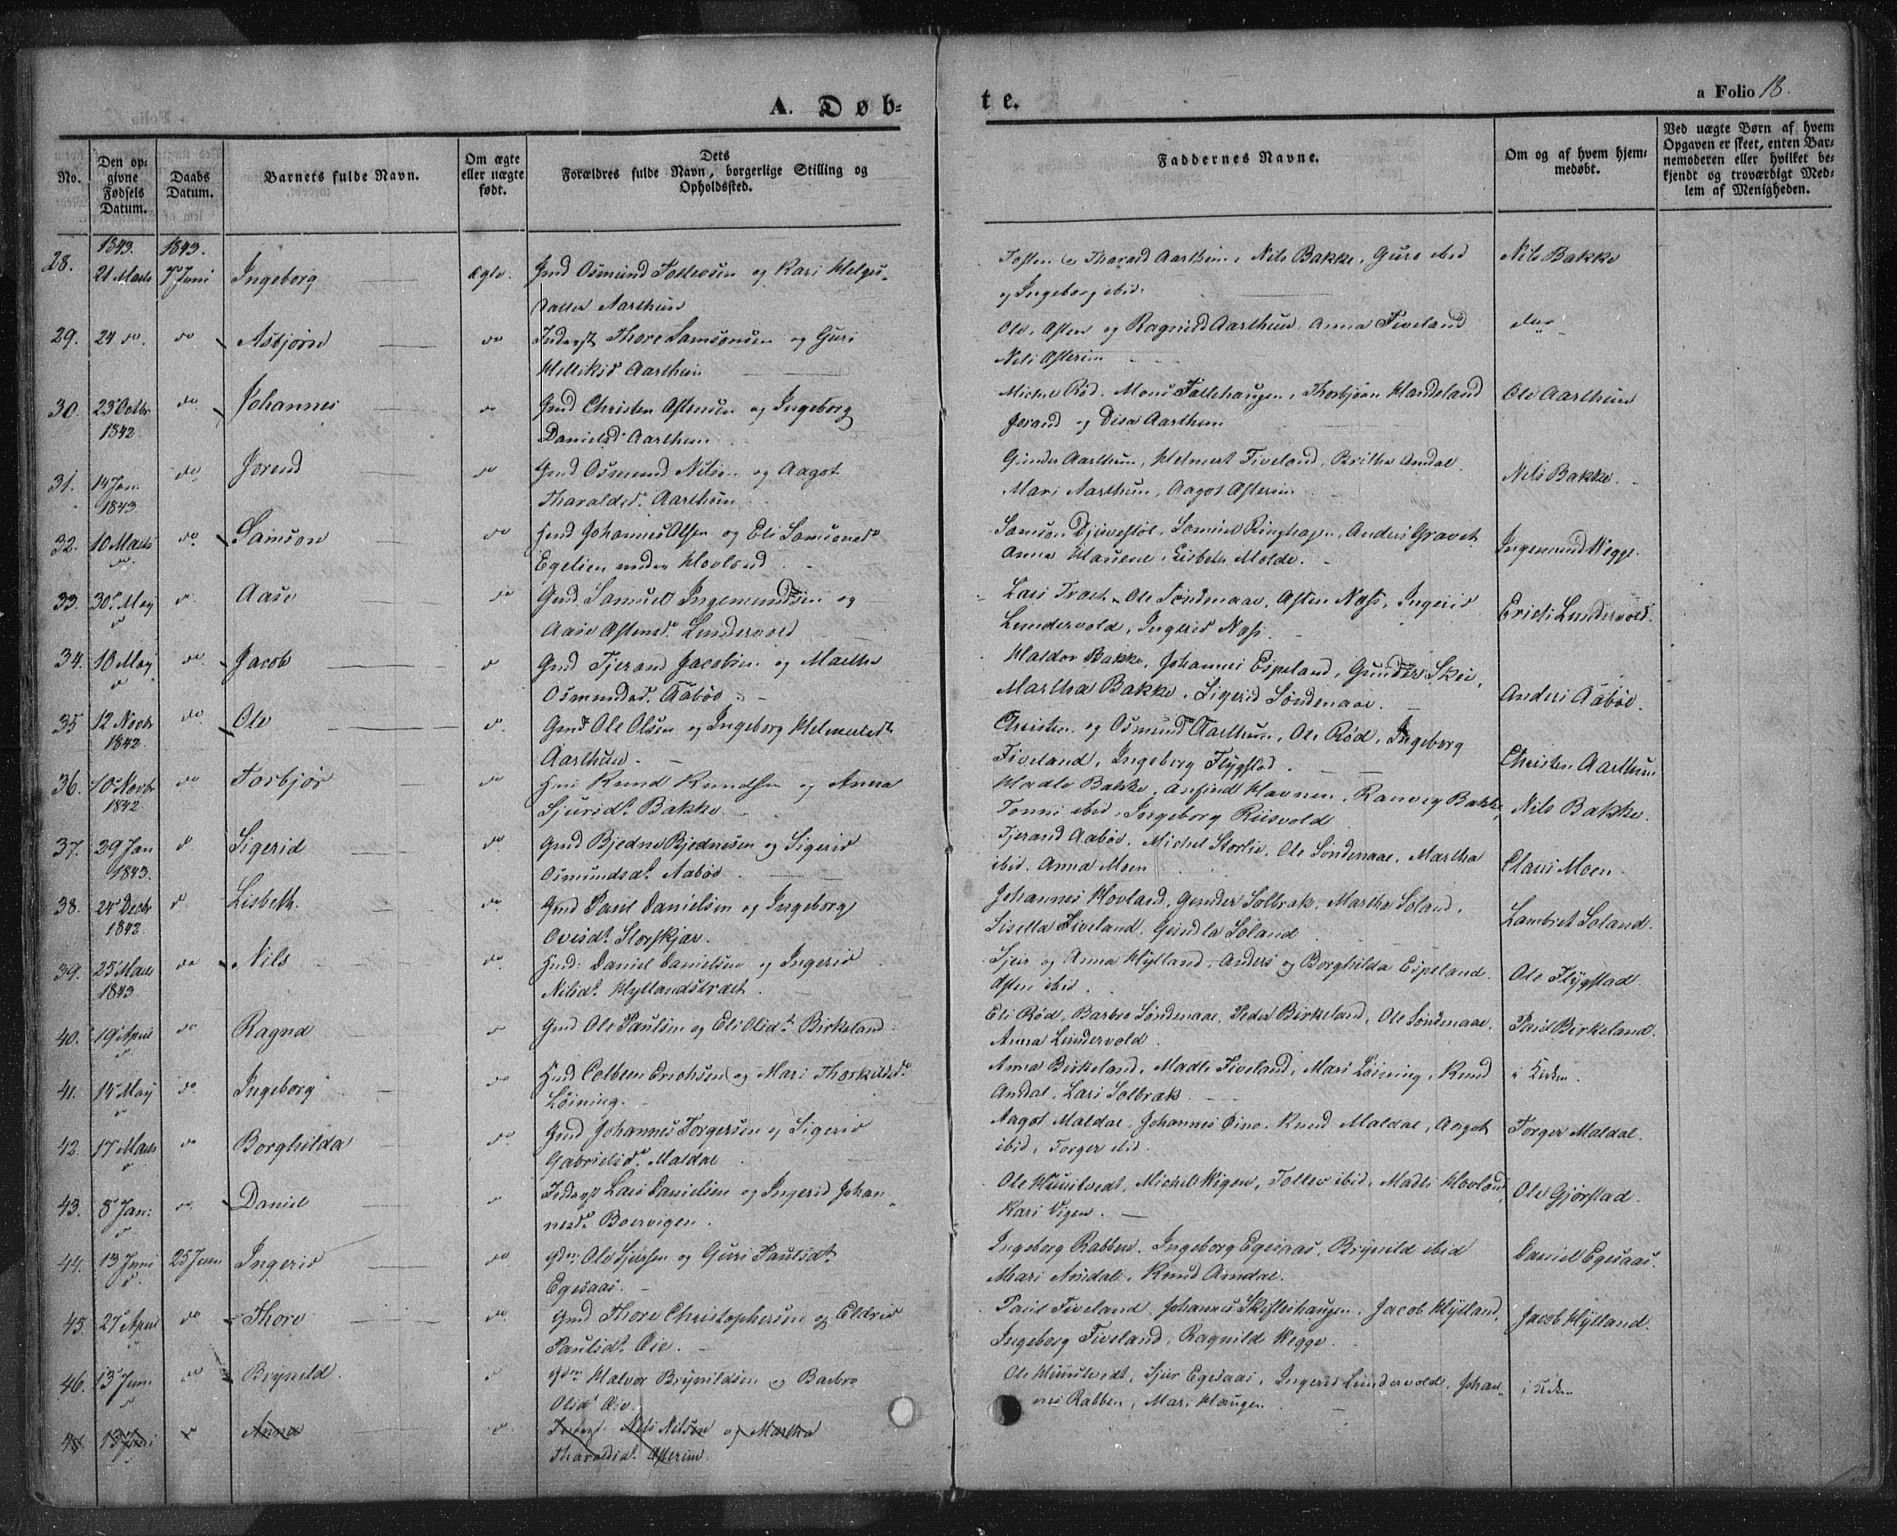 A. Døb-
te.
a Folio 18.
No.
Den op-
givne
Fødsels
Datum.
Daabs
Datum.
Barnets fulde Navn.
Om ægte
eller uægte
født.
Dets
Forældres fulde Navn, borgerlige Stilling og
Opholdssted.
Faddernes Navne.
Om og af hvem hjem-
medøbt.
Ved uægte Børn af hvem
Opgaven er skeet, enten Bar-
nemoderen eller hvilket be-
kjendt og troværdigt Med-
lem af Menigheden.
1843. 1843.
28. 21 Marts 7 Juni Ingeborg ægte. Gmd Osmund Tollevsen og Kari Helges-
datter Aarthun
Tosten Tharald Aarthun, Nils Bakke, Guro ibid
og Ingeborg ibid.
Nils Bakke
29. 24 do. do Asbjørn do Thore Samsonsen og Guri
Aarthun
Ole, Asten og Ragnild Aarthun, Anna Fiveland
Nils Asterim
do
30. 23 Octbr do Johannes do Gmd Christen Astensen og Ingeborg
1842 Danielsd. Aarthun
Michel Rød, Mons Follehaugen, Thorbjørn Handeland
Jorand og Disa Aarthun
Ole Aarthun
31. 14 Jan. do Jorend do Gmd Osmund Nilsen og Aagot
1843 Tharaldsd. Aarthun
Gunder Aarthun, Helmert Fiveland, Britha Amdal
Mari Aarthun, Aagot Asterim
Nils Bakke
32. 10 Marts do Samson do Hmd Johannes Olsen og Eli Samsonsd.
do Egelien under Hovland
Samson Djuvestøl, Samuel Ringhagen, Anders Gravet
Anna Hauene, Lisbeth Molde.
Ingemund Wegge
33. 30 May d Aase do Gmd Samuel Ingemundsen og
d Aase Astensd. Lundervold
Lars Træet, Ole Søndenaae, Asten Næss, Ingerid
Lundervold, Ingerid Næss.
Erich Lundervold.
34. 10 May do Jacob d Gmd Tjerand Jacobsen og Martha
d Osmundsd. Aabøe
Haldor Bakke, Johannes Espeland, Gunder Skei,
Martha Bakke, Sigerid Søndenaae.
Anders Aabøe.
35 12 Novbr do Ole d. Gmd Ole Olsen og Ingeborg Helmertsd.
1842. Aarthun.
Christen og Osmund Aarthun, Ole Rød, Ingeborg
Fiveland, Ingeborg Flygstad.
Christen Aarthun
36. 10 Novbr do Torbjør do Knud Knudsen og Anna
1842. Sjursd. Bakke.
Bakke, Anfind Havnen, Ranveig Bakke,
Tonni ibid, Ingeborg Riisvold
Nils Bakke.
37. 29 Jan d Sigerid do. Gmd Bjedne Bjednesen og Sigerid
1843. Osmundsd. Aabøe
Tjerand Aabøe, Michel Storlie, Ole Søndenaae, Martha
ibid. Anna Moen
Claus Moen.
38. 24 Decbr d. Lisbeth. do. Gmd Paul Danielsen og Ingeborg
1842 Ovesd. Storskjær.
Johannes Hovland, Gunder Solbrak, Martha Soland,
Sisella Fiveland, Gundla Soland
Lambret Soland.
39. 25 Marts do Nils do. Hmd: Daniel Danielsen og Ingerid
1843. Nilsd. Hyllandstræet.
Sjur og Anna Hylland, Anders og Borghilda Espeland.
Asten ibid.
Ole Flygstad.
40. 19 April do Ragna d Gmd Ole Paulsen og Eli Olsd. Birkeland.
d
Eli Rød, Barbro Søndenaae, Peder Birkeland, Ole Søndenaae,
Anna Lundervold.
Paul Birkeland.
41. 14 May do Ingeborg do Hmd Colben Erichsen og Mari Thorkildsd.
d Løining.
Anna Birkeland, Madli Fiveland, Mari Løining, Knud
Amdal, Lars Solbrak
i Kirken.
42. 17 Marts do Borghilda do Gmd Johannes Torgersen og Sigerid
d Gabrielsd. Maldal
Aagot Maldal, Johannes Eino, Knud Maldal, Aagot
ibid, Torger ibid.
Torger Maldal.
43. 8 Jan: do. Daniel d Lars Danielsen og Ingerid Johan-
d nesd. Boervigen.
Ole Huustvedt, Michel Wigen, Tollev ibid, Madli Hovland,
Kari Vigen.
Ole Gjørstad.
44. 13 Juni 25 Juni Ingerid do Ole Sjursen og Guri Paulsd.
d. Egesaas.
Ingeborg Rabben, Ingeborg Egesaas, Brynild ibid
Mari Amdal, Knud Amdal.
Daniel Egesaas.
45. 27 April do Thore do. Gmd Thore Christophersen og Eldrid
Paulsd. Øie.
Paul Fiveland, Johannes Skifteshaugen, Jacob Hylland,
Ingeborg Fiveland, Ragnild Wegge.
Jacob Hylland.
46. 13 Juni do Brynild. d Halvor Brynildsen og Barbro
d Olsd.
Ole Huustvedt, Sjur Egesaas, Ingerid Lundervold, Johan-
nes Rabben, Mari Haugen.
i Kirken
13 Juni do Anna d Nils Nilsen og Martha
Tharaldsd. Asterim.